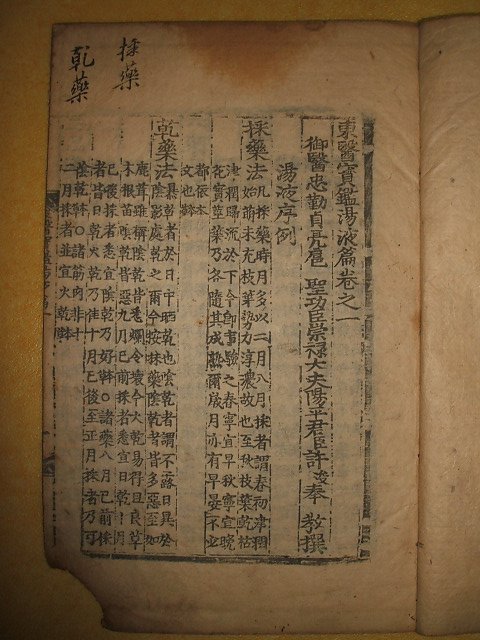 採藥
乾藥
東醫寶鑑湯液篇卷之一
御醫忠勤貞亮扈 聖功臣崇祿大夫陽平君臣許浚奉 敎撰
湯液序例
採藥法 凡採藥時月多以二月八月採者謂春初津潤
始萌未充枝葉勢力淳濃故也至秋枝葉乾枯
津潤歸流於下今即事驗之春寧宜早秋寧宜晚
花實莖葉乃各隨其成熟爾歲月亦有早晏不必
都依本
文也本草
乾藥法 暴乾者於日中晒乾也陰乾者謂不露日暴於
陰影處乾之爾今按採藥陰乾者皆多惡至如
鹿茸雖稱陰乾皆悉爛令壞今火乾易得且良草
木根苗陰乾皆惡九月已前採者悉宜日乾十月
已後採者悉宜陰乾乃好本草○諸藥八月已前採
者皆日乾火乾乃佳十月已後至正月採者乃可
陰乾本草○諸筋肉非十
二月採者並宜火乾本草